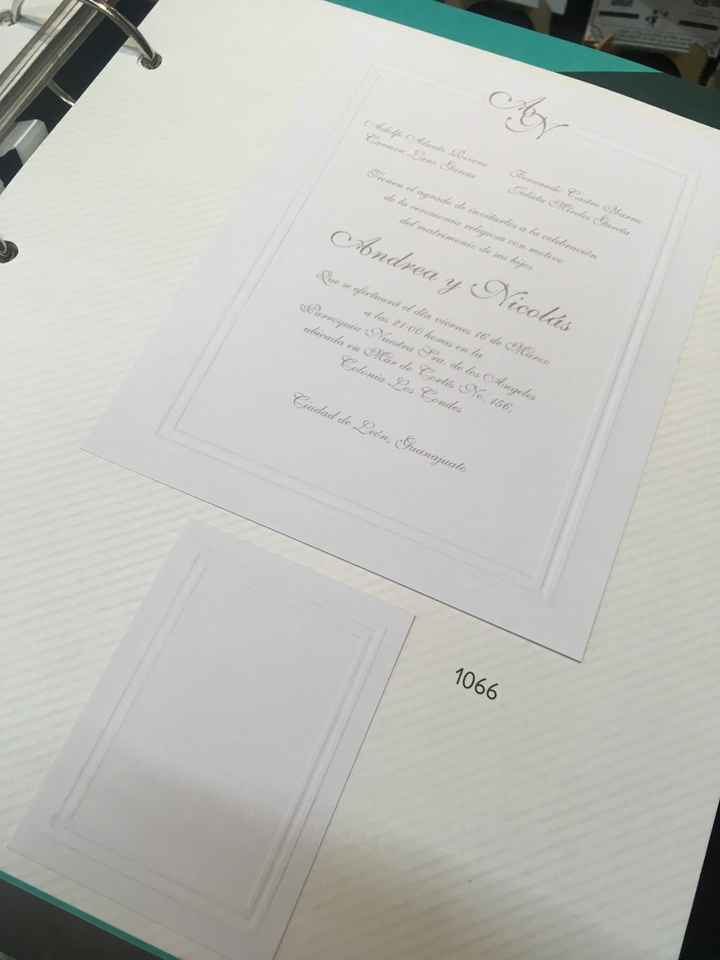 AN
Adolfo Alanís
Carmen Lara García
Fernando Castro
Julieta Morales García
Tienen el agrado de invitarles a la celebración
de la ceremonia religiosa con motivo
del matrimonio de sus hijos
Andrea y Nicolás
Que se efectuará el día viernes 16 de Marzo
a las 21:00 horas en la
Parroquia Nuestra Sra. de los Angeles
ubicada en Mar de Cortés No. 156,
Colonia Los Condes
Ciudad de León, Guanajuato
1066